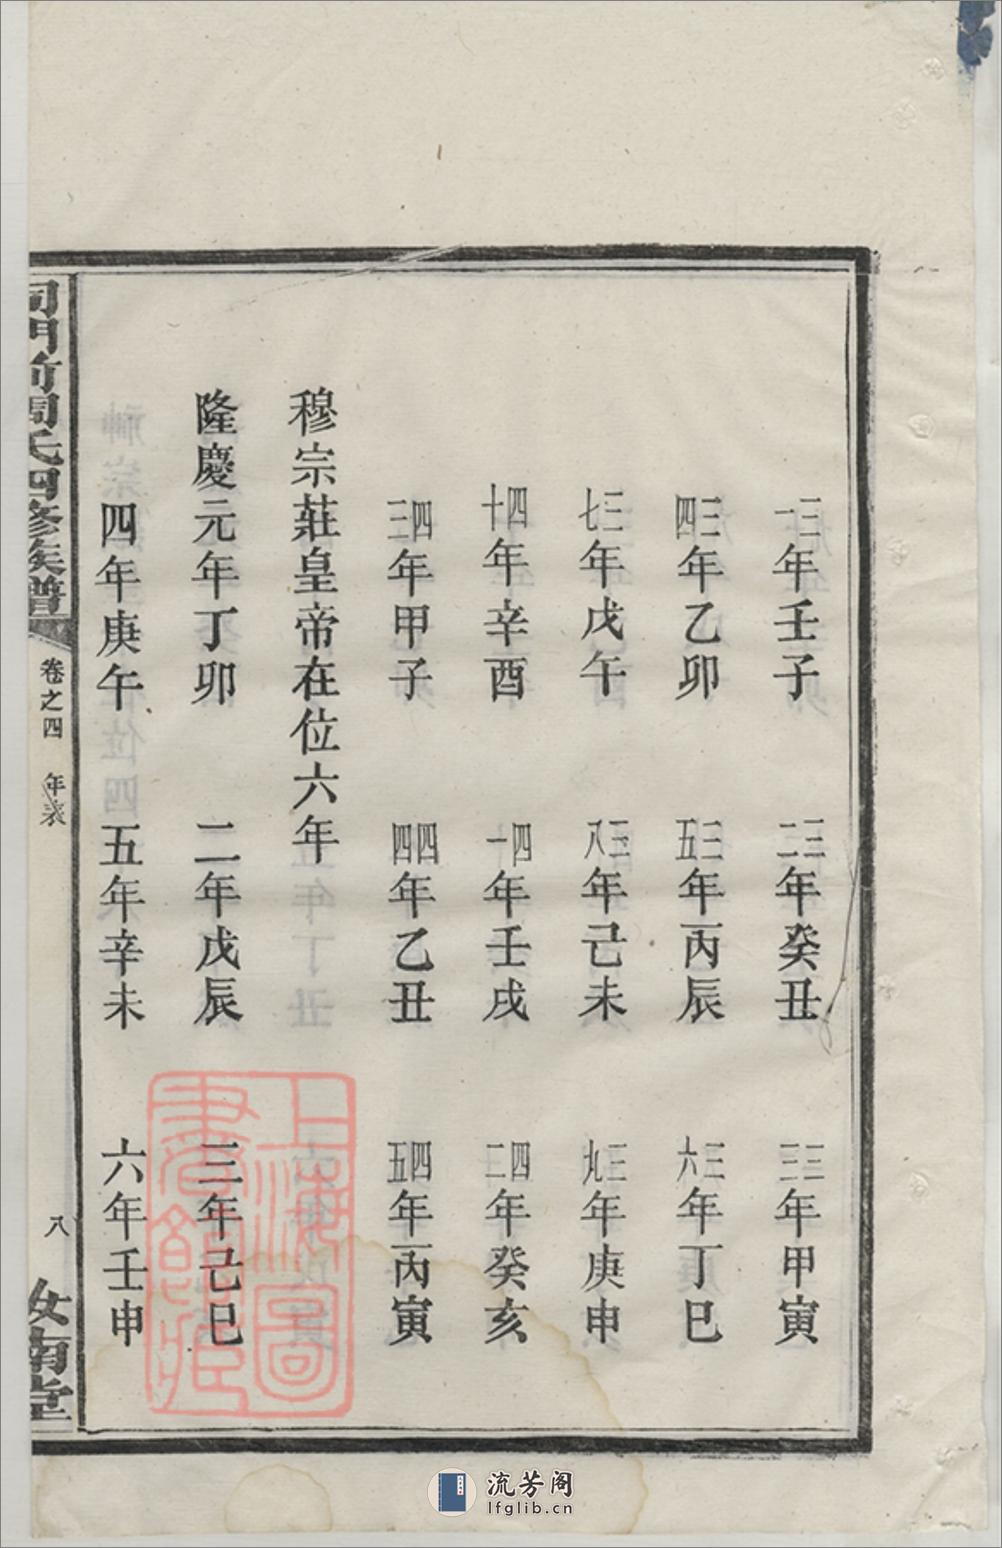 三一年壬子　三二年癸丑　三三年甲寅
三四年乙卯　三五年丙辰　三六年丁巳
三七年戊午　三八年己未　三九年庚申
四十年辛酉　四一年壬戌　四二年癸亥
四三年甲子　四四年乙丑　四五年丙寅
穆宗莊皇帝在位六年
隆慶元年丁卯　二年戊辰　三年己巳
四年庚午　五年辛未　六年壬申
司門前周氏四修族譜　卷之四　年表　八　汝南堂
上海圖書館藏
流芳阁
lfglib.cn